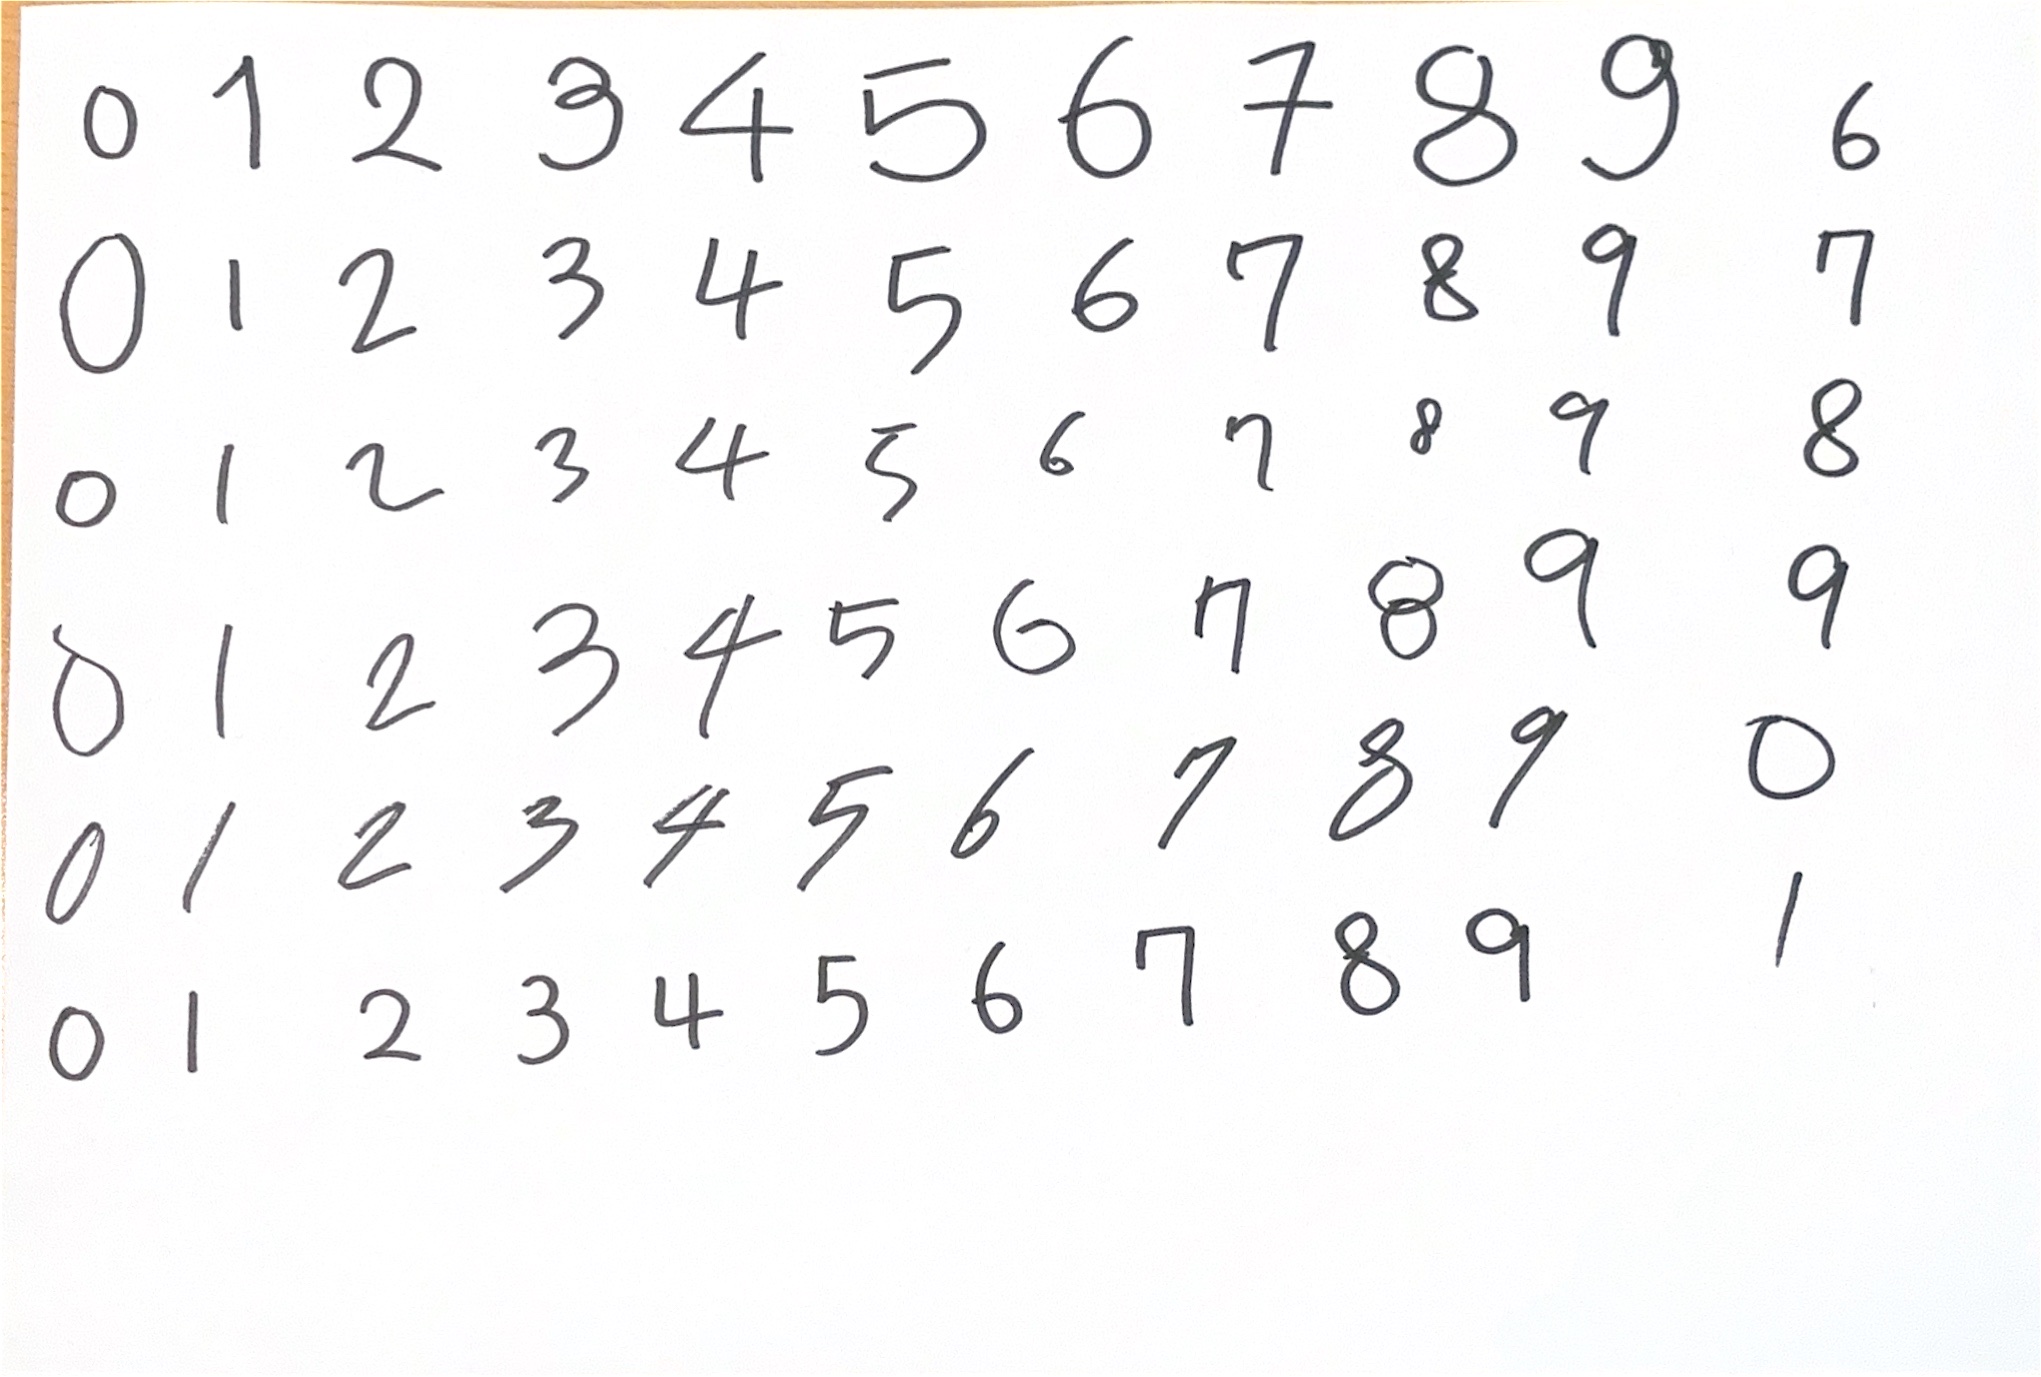 0 1 2 3 4 5 6 7 8 9 6
0 1 2 3 4 5 6 7 8 9 7
0 1 2 3 4 5 6 7 8 9 8
0 1 2 3 4 5 6 7 8 9 9
0 1 2 3 4 5 6 7 8 9 0
0 1 2 3 4 5 6 7 8 9 1